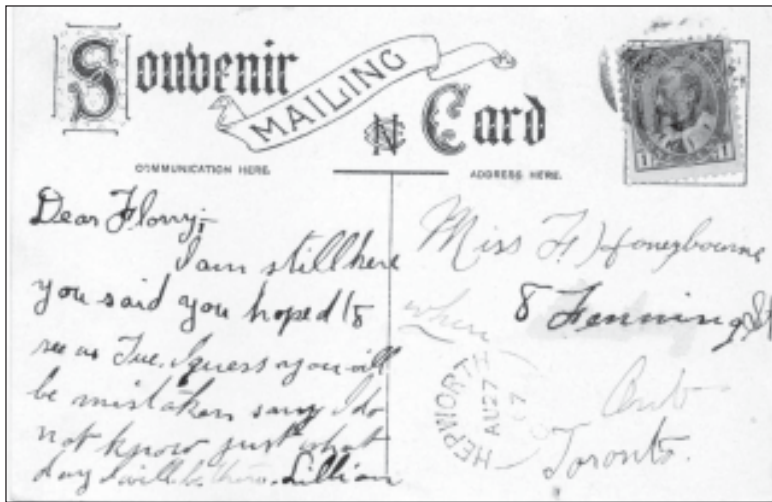 Souvenir
MAILING
Card
COMMUNICATION HERE.
ADDRESS HERE.
1 1
Dear Florry;
I am still here
you said you hoped to
see us Tue. I guess you will
be mistaken say I do
not know just what
day I will be there. Lillian
Miss F. Honeybourne
when
8 Fenning St
Ont
Toronto.
HEPWORTH
AU 27
07